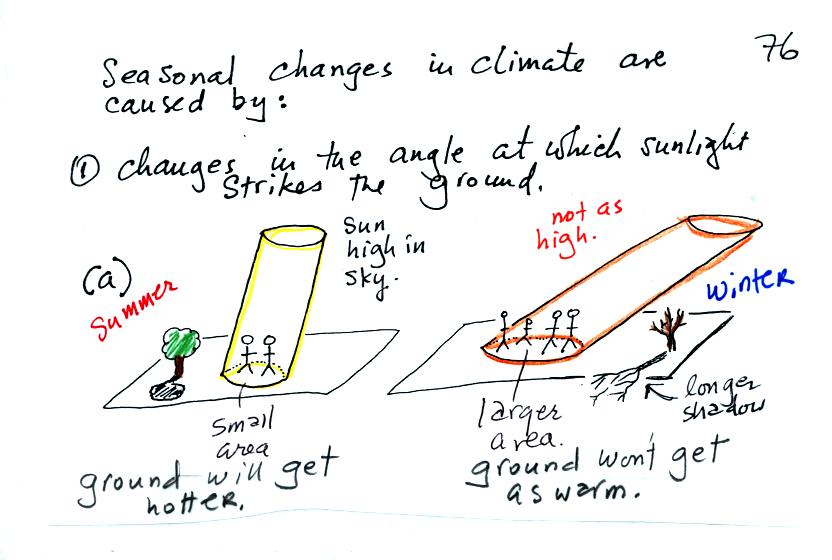 76
Seasonal changes in climate are
caused by:
① changes in the angle at which sunlight
strikes the ground.
(a)
Summer
Sun
high in
sky.
small
area
ground will get
hotter.
not as
high.
Winter
larger
area.
longer
shadow
ground won't get
as warm.